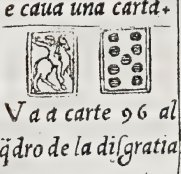 e caua una carta.
Va a carte 96 al
q̃dro de la diſgratia